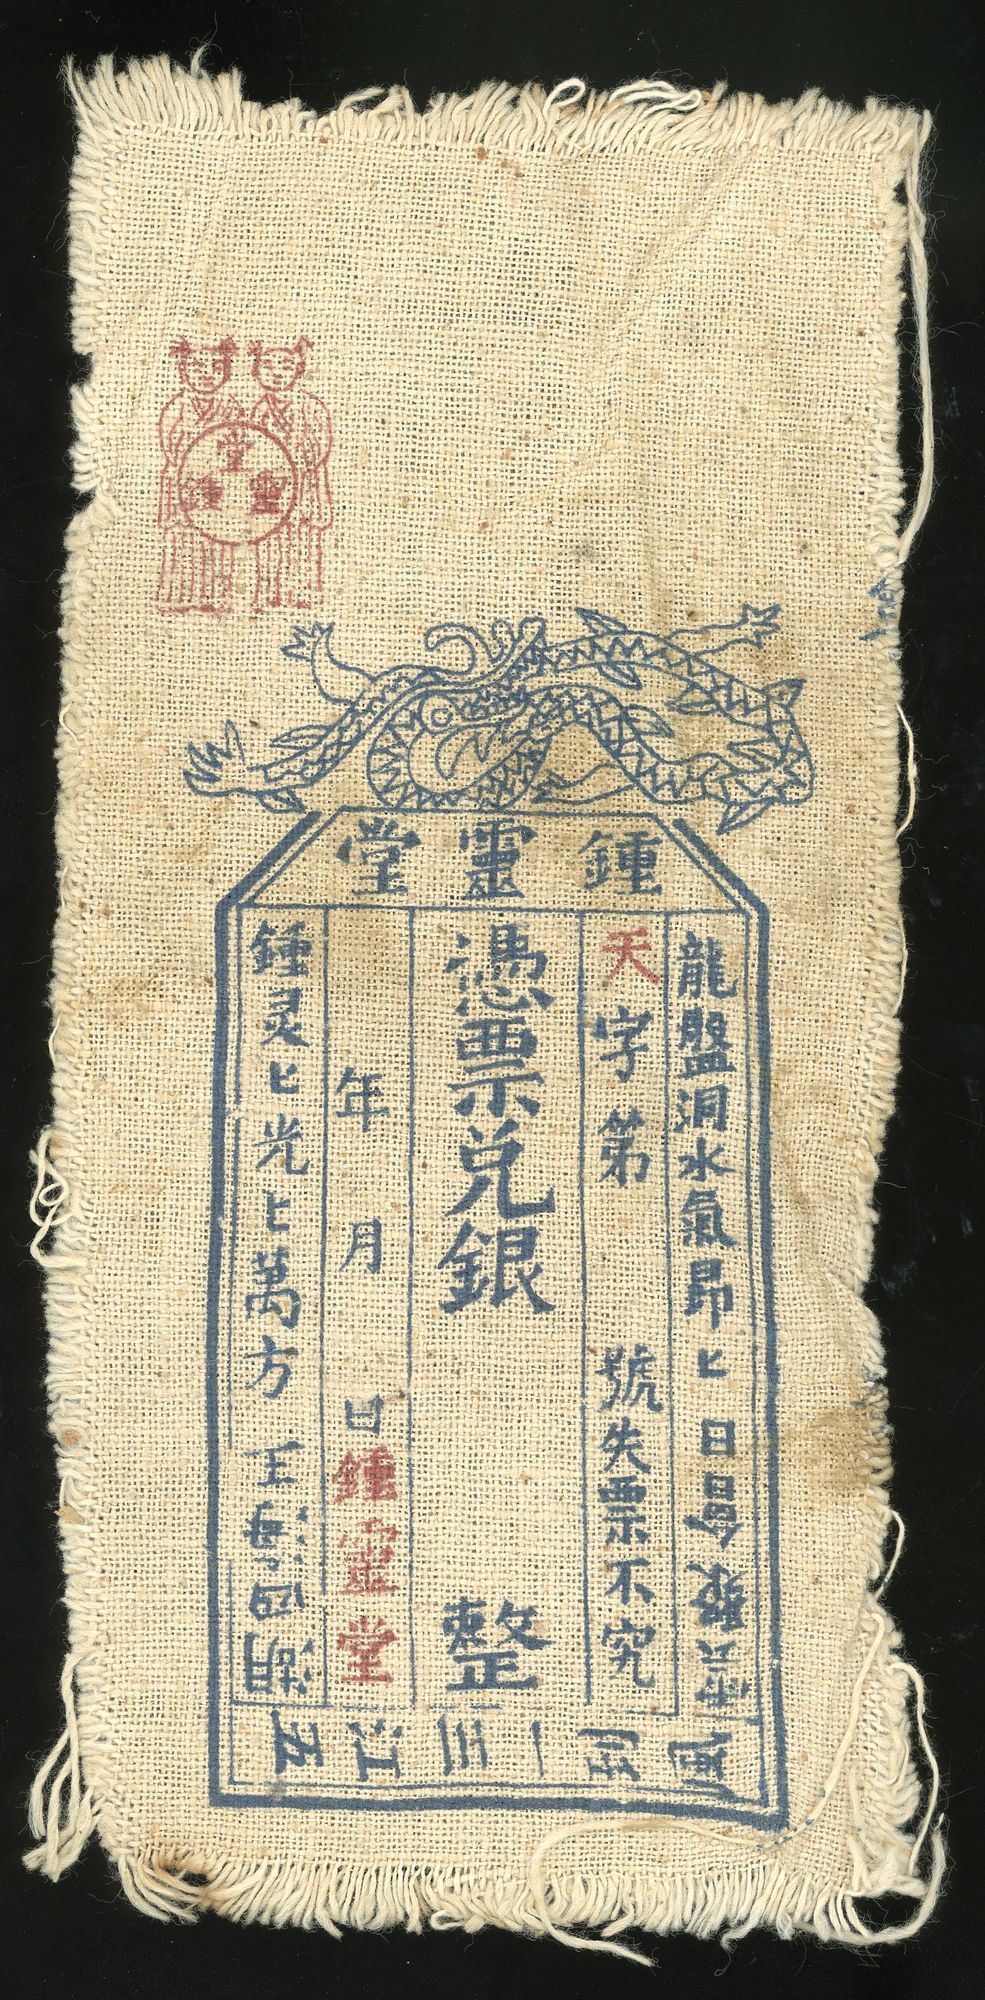 堂
鍾靈
鍾靈堂
龍盤洞水氣昂匕日
天字第 號失票不究
憑票兌銀 整
年 月 日鍾靈堂
鍾灵匕光匕萬方